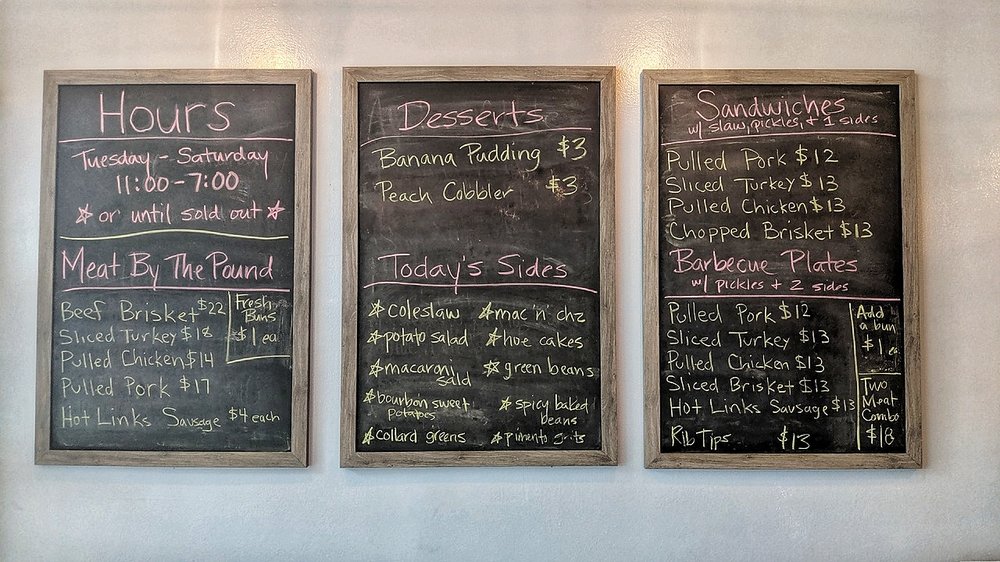 Hours
Tuesday - Saturday
11:00 - 7:00
☆ or until sold out ☆
Meat By The Pound
Beef Brisket $22
Sliced Turkey $18
Pulled Chicken $14
Pulled Pork $17
Hot Links Sausage $4 each
Fresh
Buns
$1 ea
Desserts
Banana Pudding $3
Peach Cobbler $3
Today's Sides
☆ coleslaw
☆ potato salad
☆ macaroni
salad
☆ bourbon sweet
potatoes
☆ collard greens
☆ mac 'n' chz
☆ hoe cakes
☆ green beans
☆ spicy baked
beans
☆ pimento grits
Sandwiches
w/ slaw, pickles, + 1 sides
Pulled Pork $12
Sliced Turkey $13
Pulled Chicken $13
Chopped Brisket $13
Barbecue Plates
w/ pickles + 2 sides
Pulled Pork $12
Sliced Turkey $13
Pulled Chicken $13
Sliced Brisket $13
Hot Links Sausage $13
Rib Tips $13
Add
a bun
$1 ea
Two
Meat
Combo
$18